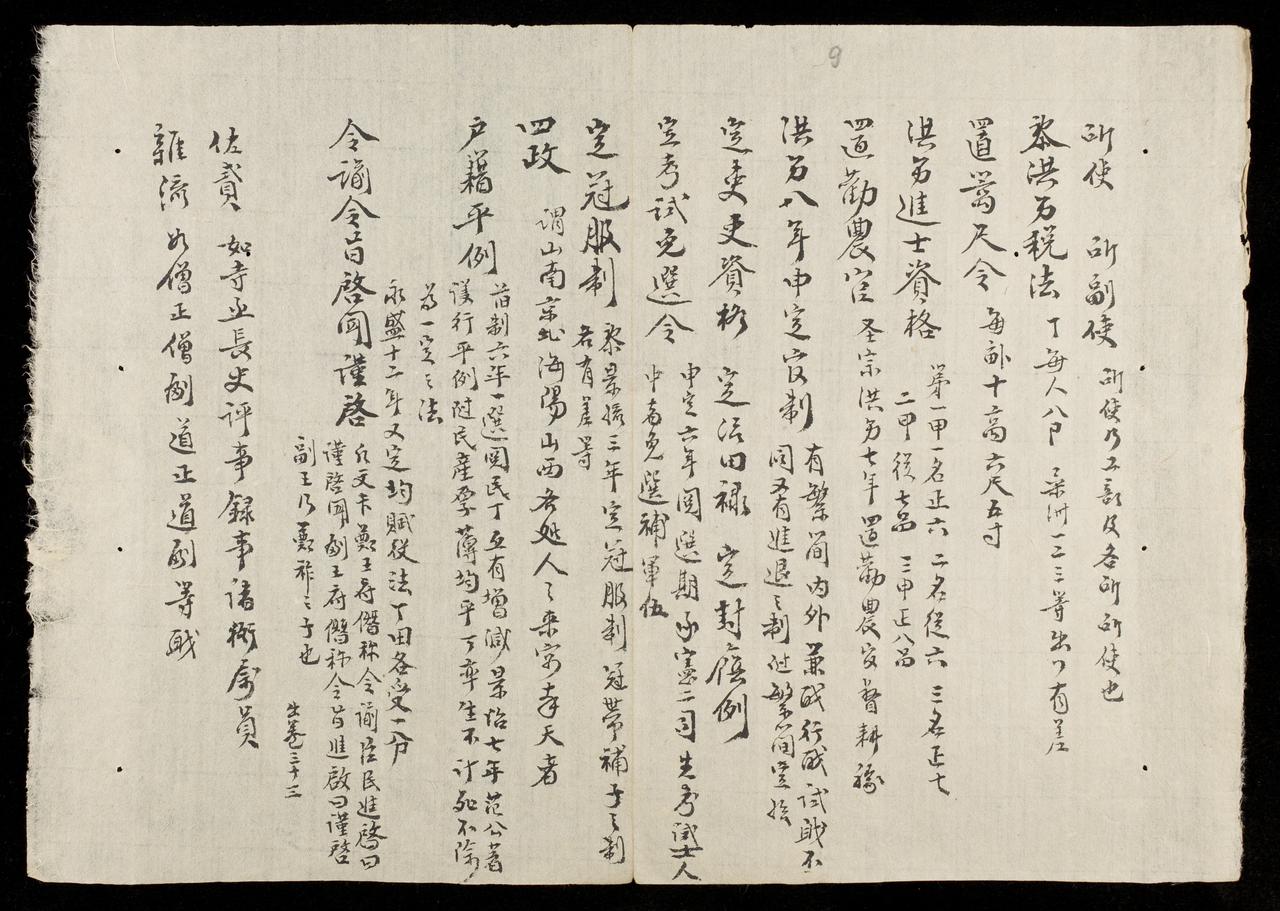 9
所使 所副使 所使乃工部及各所所使也
黎洪方税法 丁每人八甶 桑洲一二三等出有差
置蒿尺令 每畝十高六尺五寸
洪方進士資格 第一甲一名正六 二名從六 三名正七
二甲從七品 三甲正八品
置勸農官 圣宗洪方七年置勸農官督耕稼
洪方八年申定官制 有繁簡內外兼職行職試職不
同又有進退之制
定吏更資格 定活田祿 定封蔭例
定考試免選令 申定六年閱選期承憲二司先考試士人
中者免選補軍伍
定冠服制 黎景統三年定冠服制冠帶補子之制
各有差等
四政 謂山南京北海陽山西各姓人之来寄奉天者
户籍平例 旧制六年一選閱民丁互有增减景治七年范公著
議行平例附民產厚薄均平丁率生不計死不除
為一定之法
永盛十二年又定均賦役法丁田各受一分
令諭令旨啓聞謹啓 水文卡鄭王府僭称令諭臣民進啓曰
謹啓聞副王府僭称令旨進啟曰謹啓
副王乃鄭祚之子也
出卷三十三
佐貳 如寺丞長史評事録事諸衙等員
雜流 如僧正僧副道正道副等职